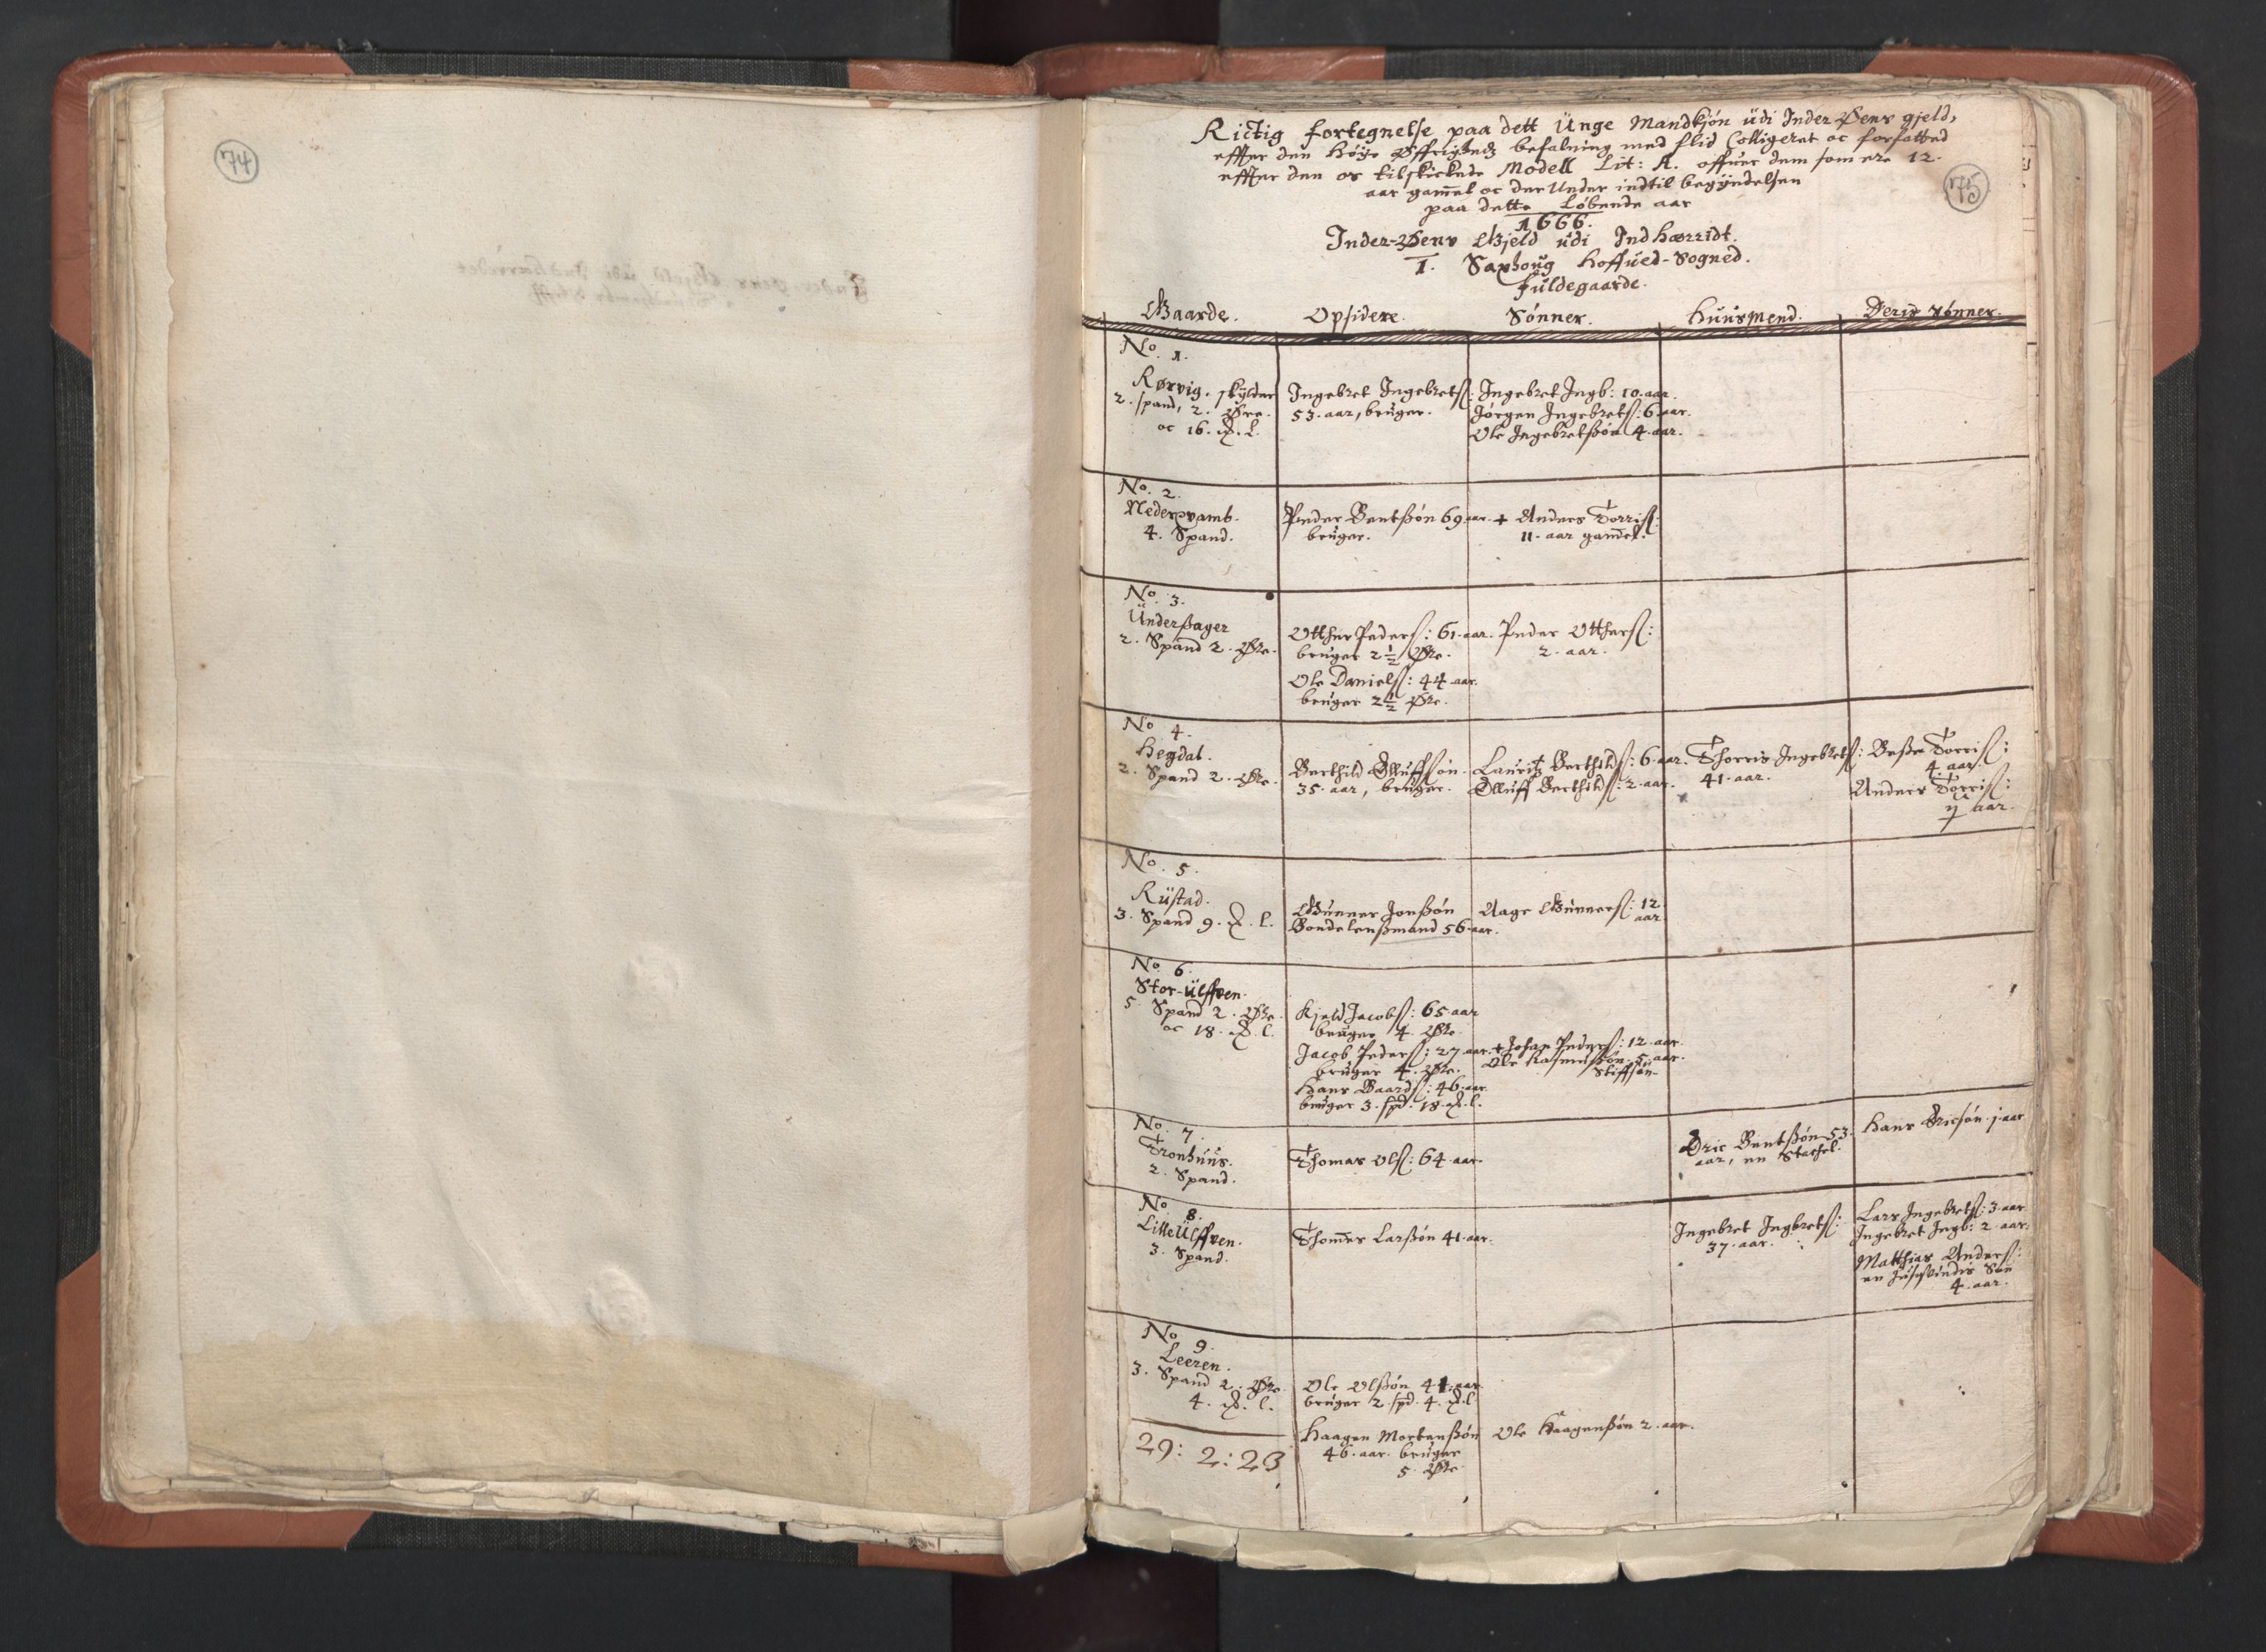 74
75
Rictig fortegnelse paa dett Ünge Mandkjøn üdi Inder Øens gjeld,
effter den høÿe Øffrigheds befalning med flid Colligeret oc forfatted
effter den os tilskickede Modell Lit: A. offuer dem som ere 12.
aar gam̄el oc der Under indtil begÿndelsen
paa dette Løbende aar
1666.
Inder-Øens Gjeld üdi Indhærridt.
1. Saxhoug Hoffued-Sogned.
Füldegaarde.
Gaarde. Opsidere. Sønner. Huusmend. Deris sønner.
No. 1.
Rørvig. skÿlder
2. spand, 2. Øre.
oc 16. . l.
Ingebret Ingebretſ:
53. aar, brüger.
Ingebret Ingb: 10. aar.
Jørgen Ingebretſ: 6. aar.
Ole Ingebretßøn 4. aar.
No. 2.
Nedervamb.
4. Spand.
Peder Bentßøn 69. aar.
brüger.
+ Anders Torriſ:
11. aar gam̄el.
No. 3.
Ünderßager
2. Spand 2. Øre.
Otther Pederſ: 61. aar.
brüger 2½ Øre.
Ole Danielſ: 44 aar.
brüger 2½ Øre.
Peder Ottherſ:
2. aar.
No. 4.
Hegdal.
2. Spand 2. Øre.
Berthild Olluffsøn.
35. aar, brüger.
Lauritz Berthildſ: 6. aar.
Olluff Berthildſ: 2. aar.
Thorris Ingebretſ:
41. aar.
Beße Torriſ:
4. aar.
Anders Torriſ:
aar.
No. 5.
Rüstad.
3. Spand 9. . l.
Gunner Jonßøn
Bondelenßmand 56. aar.
Aage Gunnerſ: 12.
aar.
No. 6.
Stor-Ülffven.
5. Spand 2. Øre.
oc 18. . l.
Kjeld Jacobſ: 65 aar
brüger 4. Øre.
Jacob Pederſ: 27 aar.
brüger 4. Øre.
Hans Baardſ: 46. aar.
brüger 3. spd. 18. . l.
+ Johan Pederſ: 12. aar.
Ole Rasmußøn. 5. aar.
Stiffsøn.
No. 7.
Tronhuus.
2. Spand.
Thomas Olſ: 64. aar.
Eric Bentßøn 53.
aar, en Stachel.
Hans Ericsøn. j. aar
No. 8.
Lille Ülffven.
3. Spand.
Thom̄es Larßøn 41. aar.
Ingebret Ingbretſ:
37. aar.
Lars Ingebretſ: 3. aar
Ingebret Ingb: 2. aar.
Matthias Anderſ:
en Søn
4. aar.
No. 9.
Leeren.
3. Spand 2. Øre.
4. . l.
Ole Olßøn 41. aar.
brüger 2 spd. 4. . l.
Haagen Mortenßøn
46. aar. brüger
5. Øre
Ole Haagenßøn 2. aar.
29: 2: 23